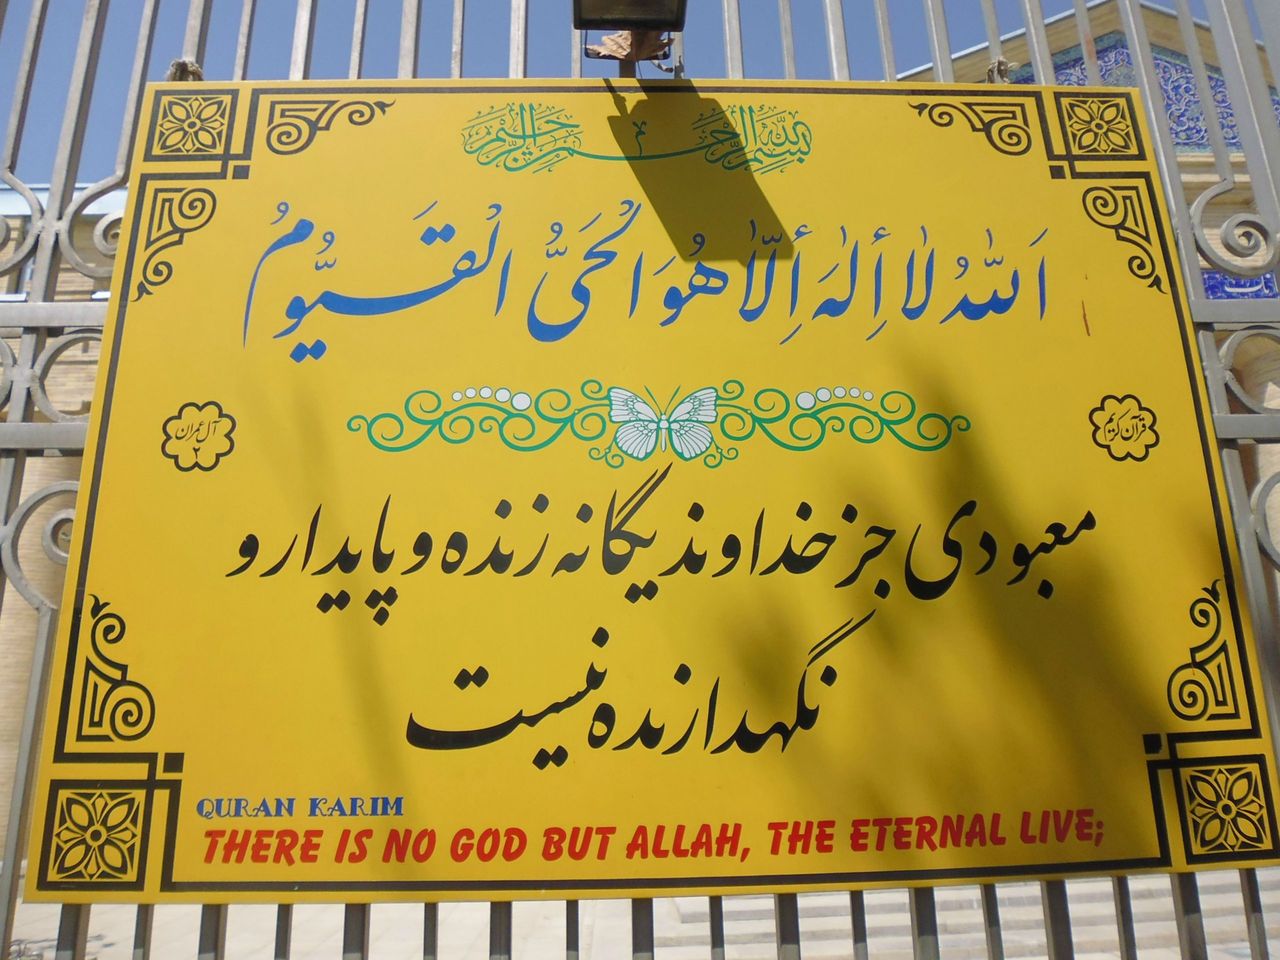 بسم الله الرحمن الرحیم
اَللّٰهُ لٰا أِلٰهَ أِلّٰا هُوَ الْحَیُّ الْقَیُّومُ
قرآن کریم
آل عمران
۲
معبودی جز خداوند یگانه زنده و پایدار و
نگهدارنده نیست
QURAN KARIM
THERE IS NO GOD BUT ALLAH, THE ETERNAL LIVE;